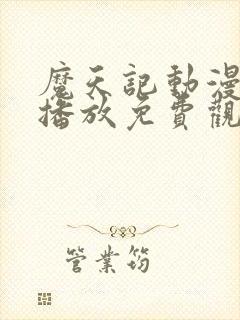 魔天記動漫
播放免費觀
管業筠